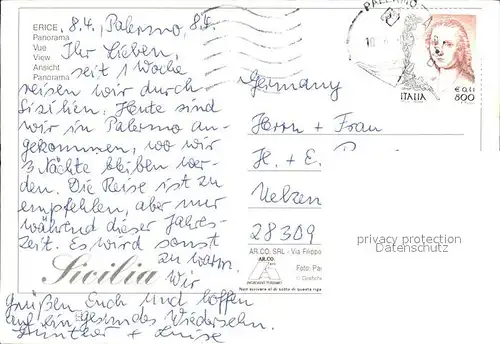 ERICE
Panorama
Vue
View
Ansicht
Panorama
8.4. Palermo, 8.4.
Ihr Lieben,
seit 1 Woche
reisen wir durch
Sizilien. Heute sind
wir in Palermo an-
gekommen, wo wir
3 Nächte bleiben wer-
den. Die Reise ist zu
empfehlen, aber nur
während dieser Jahres-
zeit. Es wird sonst
zu warm.
Wir
grüßen Euch und hoffen
auf ein gesundes Wiedersehn.
Günther + Luise
Sicilia
PALERMO
ITALIA
€ 0,41
800
Germany
Herrn + Frau
H. + E.
Uelzen
28309
AR.CO. SRL - Via Filippo
AR.CO.
Foto:
privacy protection
Datenschutz